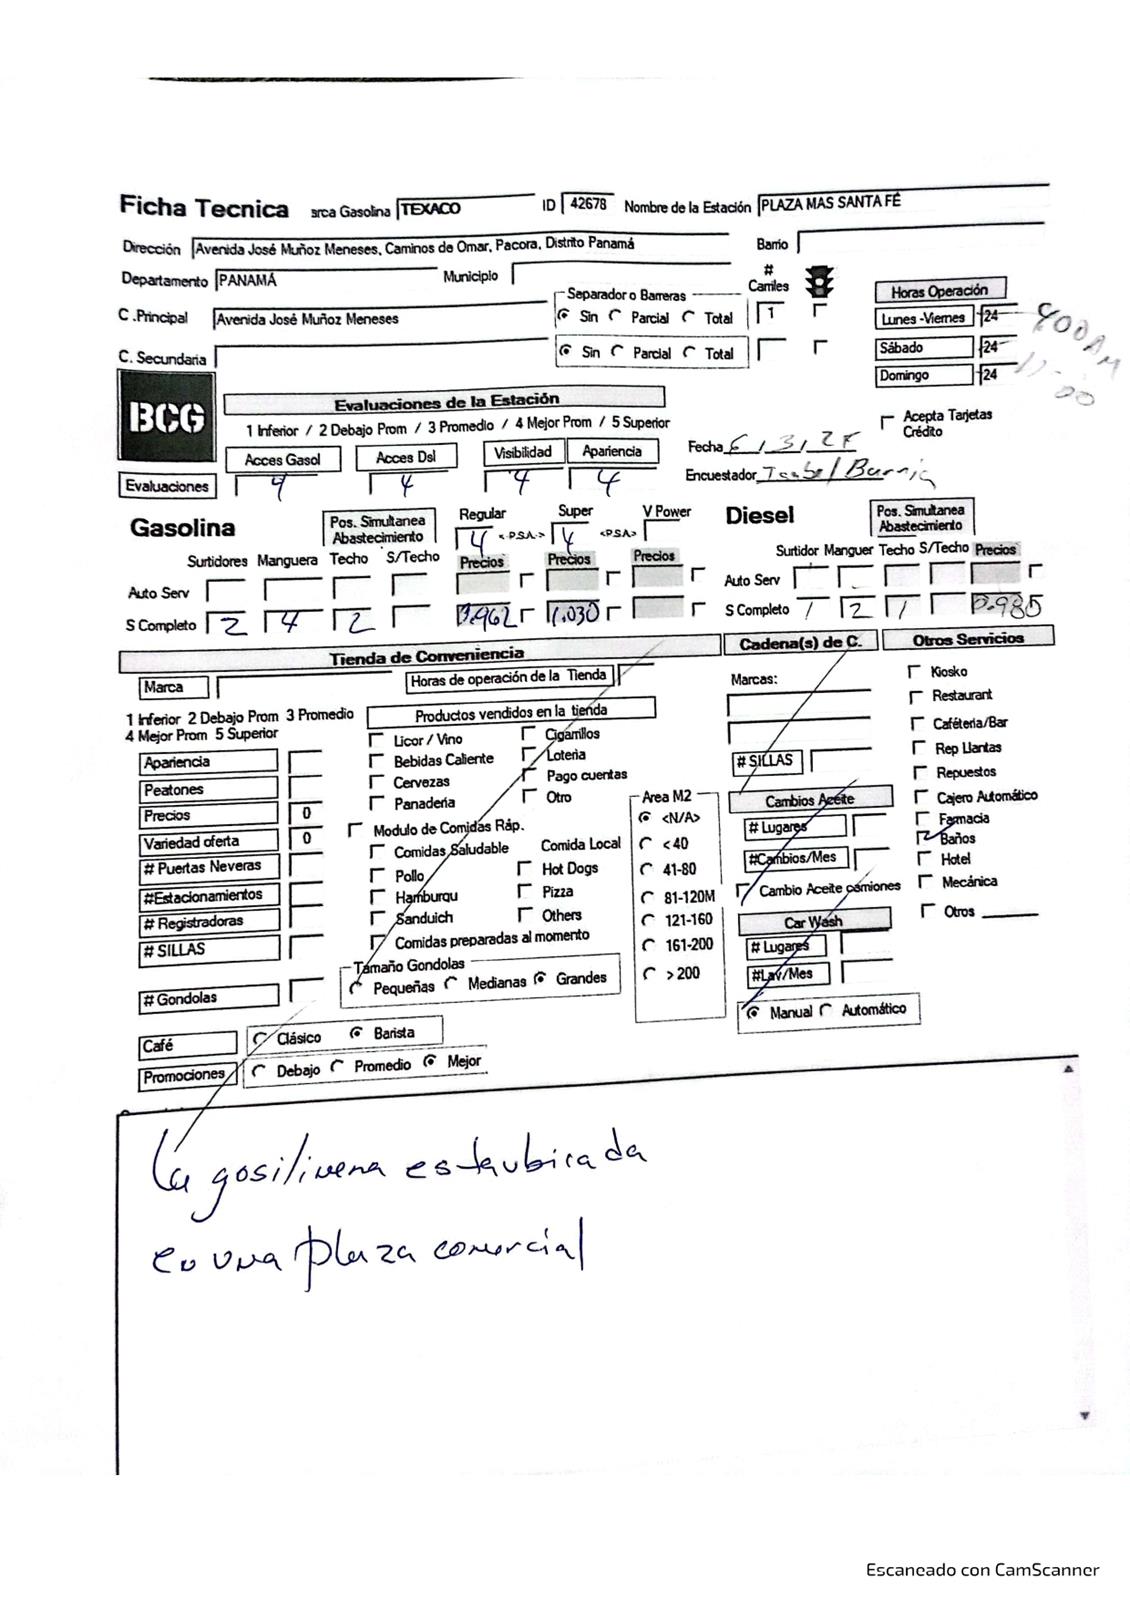 Ficha Tecnica arca Gasolina TEXACO ID 42678 Nombre de la Estación PLAZA MAS SANTA FÉ
Dirección Avenida José Muñoz Meneses, Caminos de Omar, Pacora, Distrito Panamá Barrio
Departamento PANAMÁ Municipio # Carriles
C .Principal Avenida José Muñoz Meneses Separador o Barreras Sin Parcial Total 1
C. Secundaria Sin Parcial Total
Horas Operación
Lunes -Viernes 24
Sábado 24
Domingo 24
400AM
11-00
BCG
Evaluaciones de la Estación
1 Inferior / 2 Debajo Prom / 3 Promedio / 4 Mejor Prom / 5 Superior
Acepta Tarjetas Crédito
Acces Gasol Acces Dsl Visibilidad Apariencia
Fecha 6, 3, 25
Evaluaciones 4 4 4 4
Encuestador Isabel
Gasolina Pos. Simultanea Abastecimiento Regular Super V Power
4 <-P.S.A.-> 4 <P.S.A>
Surtidores Manguera Techo S/Techo Precios Precios Precios
Auto Serv
S Completo 2 4 2 0.962 1.030
Diesel Pos. Simultanea Abastecimiento
Surtidor Manguer Techo S/Techo Precios
Auto Serv
S Completo 1 2 1 0.985
Tienda de Conveniencia
Marca Horas de operación de la Tienda
1 Inferior 2 Debajo Prom 3 Promedio
4 Mejor Prom 5 Superior
Apariencia
Peatones
Precios 0
Variedad oferta 0
# Puertas Neveras
#Estacionamientos
# Registradoras
# SILLAS
# Gondolas
Productos vendidos en la tienda
Licor / Vino Cigarrillos
Bebidas Caliente Loteria
Cervezas Pago cuentas
Panaderia Otro
Modulo de Comidas Ráp.
Comidas Saludable Comida Local
Pollo Hot Dogs
Hamburqu Pizza
Sanduich Others
Comidas preparadas al momento
Tamaño Gondolas
Pequeñas Medianas Grandes
Area M2
<N/A>
< 40
41-80
81-120M
121-160
161-200
> 200
Café Clásico Barista
Promociones Debajo Promedio Mejor
Cadena(s) de C.
Marcas:
# SILLAS
Cambios Aceite
# Lugares
#Cambios/Mes
Cambio Aceite camiones
Car Wash
# Lugares
#Lav/Mes
Manual Automático
Otros Servicios
Kiosko
Restaurant
Caféteria/Bar
Rep Llantas
Repuestos
Cajero Automático
Farmacia
Baños
Hotel
Mecánica
Otros
La gosilinena estaubicada
en una plaza comercial
Escaneado con CamScanner